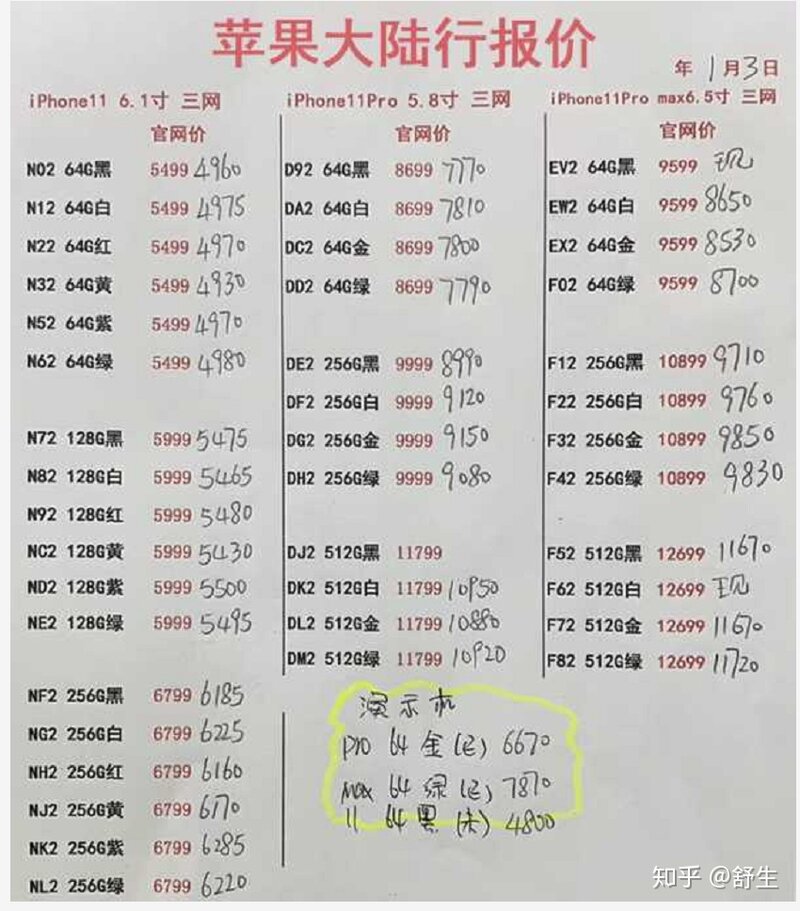 苹果大陆行报价
年 1月3日
iPhone11 6.1寸 三网
官网价
N02 64G黑 5499 4960
N12 64G白 5499 4975
N22 64G红 5499 4970
N32 64G黄 5499 4930
N52 64G紫 5499 4970
N62 64G绿 5499 4980
N72 128G黑 5999 5475
N82 128G白 5999 5465
N92 128G红 5999 5480
NC2 128G黄 5999 5430
ND2 128G紫 5999 5500
NE2 128G绿 5999 5495
NF2 256G黑 6799 6185
NG2 256G白 6799 6225
NH2 256G红 6799 6160
NJ2 256G黄 6799 6170
NK2 256G紫 6799 6285
NL2 256G绿 6799 6220
iPhone11Pro 5.8寸 三网
官网价
D92 64G黑 8699 7770
DA2 64G白 8699 7810
DC2 64G金 8699 7800
DD2 64G绿 8699 7790
DE2 256G黑 9999 8990
DF2 256G白 9999 9120
DG2 256G金 9999 9150
DH2 256G绿 9999 9080
DJ2 512G黑 11799
DK2 512G白 11799 10950
DL2 512G金 11799 10880
DM2 512G绿 11799 10920
iPhone11Pro max6.5寸 三网
官网价
EV2 64G黑 9599 现
EW2 64G白 9599 8650
EX2 64G金 9599 8530
F02 64G绿 9599 8700
F12 256G黑 10899 9710
F22 256G白 10899 9760
F32 256G金 10899 9850
F42 256G绿 10899 9830
F52 512G黑 12699 11670
F62 512G白 12699 现
F72 512G金 12699 11670
F82 512G绿 12699 11720
演示机
Pro 64 金(已) 6670
max 64 绿(已) 7870
11 64 黑(未) 4800
知乎 @舒生